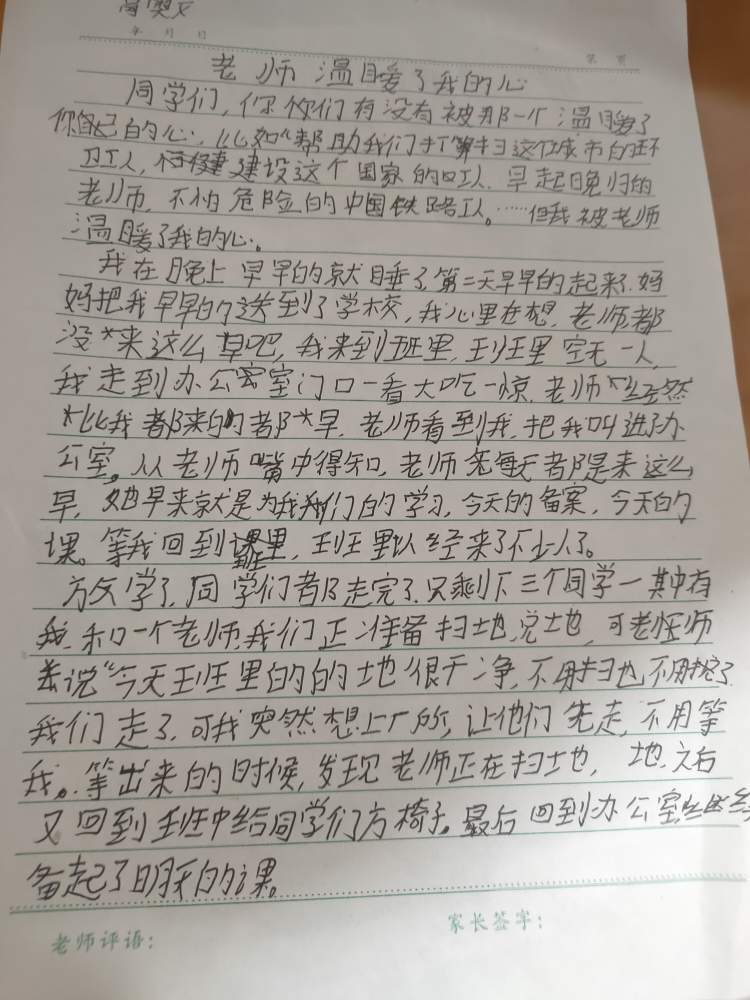 年 月 日 第 页
老师温暖了我的心
同学们，你你们有没有被那一个温暖了
你自己的心，比如“帮助我们打算扫这个城市的环
卫工人，建设这个国家的工人，早起晚归的
老师，不怕危险的中国铁路工人。……但我被老师
温暖了我的心。
我在晚上早早的就睡了，第二天早早的起来了，妈
妈把我早早的送到了学校，我心里在想，老师都
没来这么早吧，我来到班里，班里空无一人，
我走到办公室门口一看大吃一惊，老师居然
比我都来的都早，老师看到我，把我叫进了办
公室。从老师嘴中得知，老师每天都是来这么
早，她早来就是为我们的学习，今天的备案，今天的
课。等我回到班里，班里以经来了不少人了。
放学了，同学们都走完了，只剩下三个同学一其中有
我，和一个老师，我们正准备扫地，地，可老师
说“今天班里的的地很干净，不用扫也不用拖了
我们走了，可我突然想上厕所，让他们先走，不用等
我。等出来的时候，发现老师正在扫地，地，之后
又回到班中给同学们方椅子。最后回到办公室
备起了明天的课。
老师评语：
家长签字：